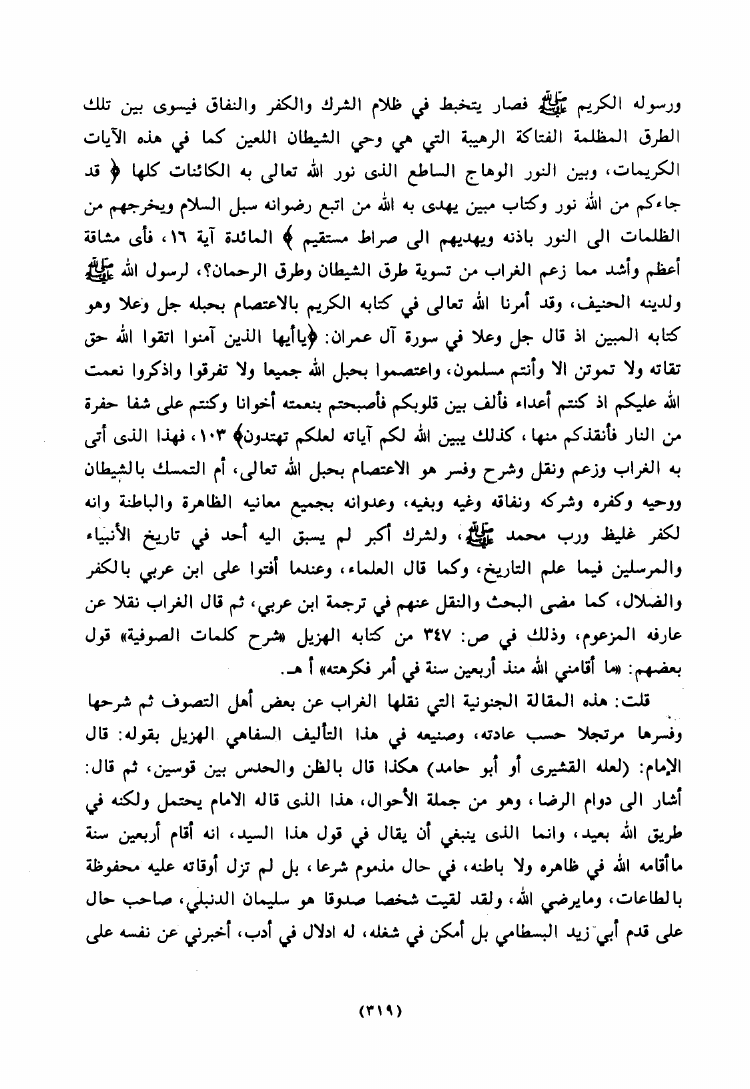 ورسوله الكريم ﷺ فصار يتخبط في ظلام الشرك والكفر والنفاق فيسوى بين تلك
الطرق المظلمة الفتاكة الرهيبة التي هي وحي الشيطان اللعين كما في هذه الآيات
الكريمات، وبين النور الوهاج الساطع الذى نور الله تعالى به الكائنات كلها ﴿ قد
جاءكم من الله نور وكتاب مبين يهدى به الله من اتبع رضوانه سبل السلام ويخرجهم من
الظلمات الى النور باذنه ويهديهم الى صراط مستقيم ﴾ المائدة آية ١٦، فأى مشاقة
أعظم وأشد مما زعم الغراب من تسوية طرق الشيطان وطرق الرحمان؟، لرسول الله ﷺ
ولدينه الحنيف، وقد أمرنا الله تعالى في كتابه الكريم بالاعتصام بحبله جل وعلا وهو
كتابه المبين اذ قال جل وعلا في سورة آل عمران: ﴿ياأيها الذين آمنوا اتقوا الله حق
تقاته ولا تموتن الا وأنتم مسلمون، واعتصموا بحبل الله جميعا ولا تفرقوا واذكروا نعمت
الله عليكم اذ كنتم أعداء فألف بين قلوبكم فأصبحتم بنعمته أخوانا وكنتم على شفا حفرة
من النار فأنقذكم منها، كذلك يبين الله لكم آياته لعلكم تهتدون﴾ ١٠٣، فهذا الذى أتى
به الغراب وزعم ونقل وشرح وفسر هو الاعتصام بحبل الله تعالى، أم التمسك بالشيطان
ووحيه وكفره وشركه ونفاقه وغيه وبغيه، وعدوانه بجميع معانيه الظاهرة والباطنة وانه
لكفر غليظ ورب محمد ﷺ، ولشرك أكبر لم يسبق اليه أحد في تاريخ الأنبياء
والمرسلين فيما علم التاريخ، وكما قال العلماء، وعندما أفتوا على ابن عربي بالكفر
والضلال، كما مضى البحث والنقل عنهم في ترجمة ابن عربي، ثم قال الغراب نقلا عن
عارفه المزعوم، وذلك في ص: ٣٤٧ من كتابه الهزيل «شرح كلمات الصوفية» قول
بعضهم: «ما أقامني الله منذ أربعين سنة في أمر فكرهته» أ هـ.
قلت: هذه المقالة الجنونية التي نقلها الغراب عن بعض أهل التصوف ثم شرحها
وفسرها مرتجلا حسب عادته، وصنيعه في هذا التأليف السفاهي الهزيل بقوله: قال
الإمام: (لعله القشيرى أو أبو حامد) هكذا قال بالظن والحدس بين قوسين، ثم قال:
أشار الى دوام الرضا، وهو من جملة الأحوال، هذا الذى قاله الامام يحتمل ولكنه في
طريق الله بعيد، وانما الذى ينبغي أن يقال في قول هذا السيد، انه أقام أربعين سنة
ماأقامه الله في ظاهره ولا باطنه، في حال مذموم شرعا، بل لم تزل أوقاته عليه محفوظة
بالطاعات، ومايرضي الله، ولقد لقيت شخصا صدوقا هو سليمان الدنبلي، صاحب حال
على قدم أبي زيد البسطامي بل أمكن في شغله، له ادلال في أدب، أخبرني عن نفسه على
(٣١٩)